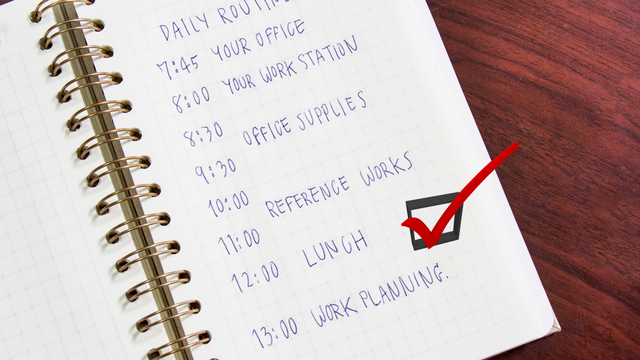 DAILY ROUTINE
7:45 YOUR OFFICE
8:00 YOUR WORK STATION
8:30 OFFICE SUPPLIES
9:30
10:00 REFERENCE WORKS
11:00
12:00 LUNCH
13:00 WORK PLANNING.